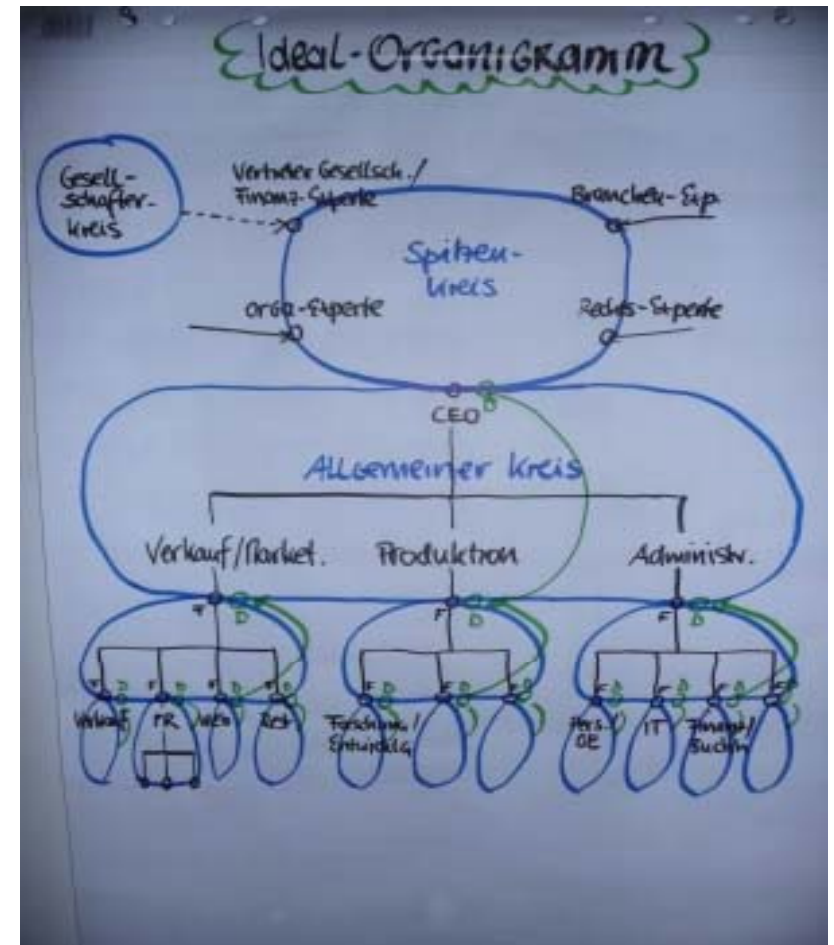 Ideal-Organigramm
Gesell-
schafter-
kreis
Vertreter Gesellsch./
Finanz-Experte
Branchen-Exp.
Spitzen-
kreis
Orga-Experte
Rechts-Experte
D
CEO
Allgemeiner Kreis
Verkauf/Market.
Produktion
Administr.
F D
F D
F D
F D F D F D F D
F D F D F D
F D F D F D F D
Verkauf
PR
Forschung/
Entwicklg
Pers./
OE
IT
Finanz/
Buchh